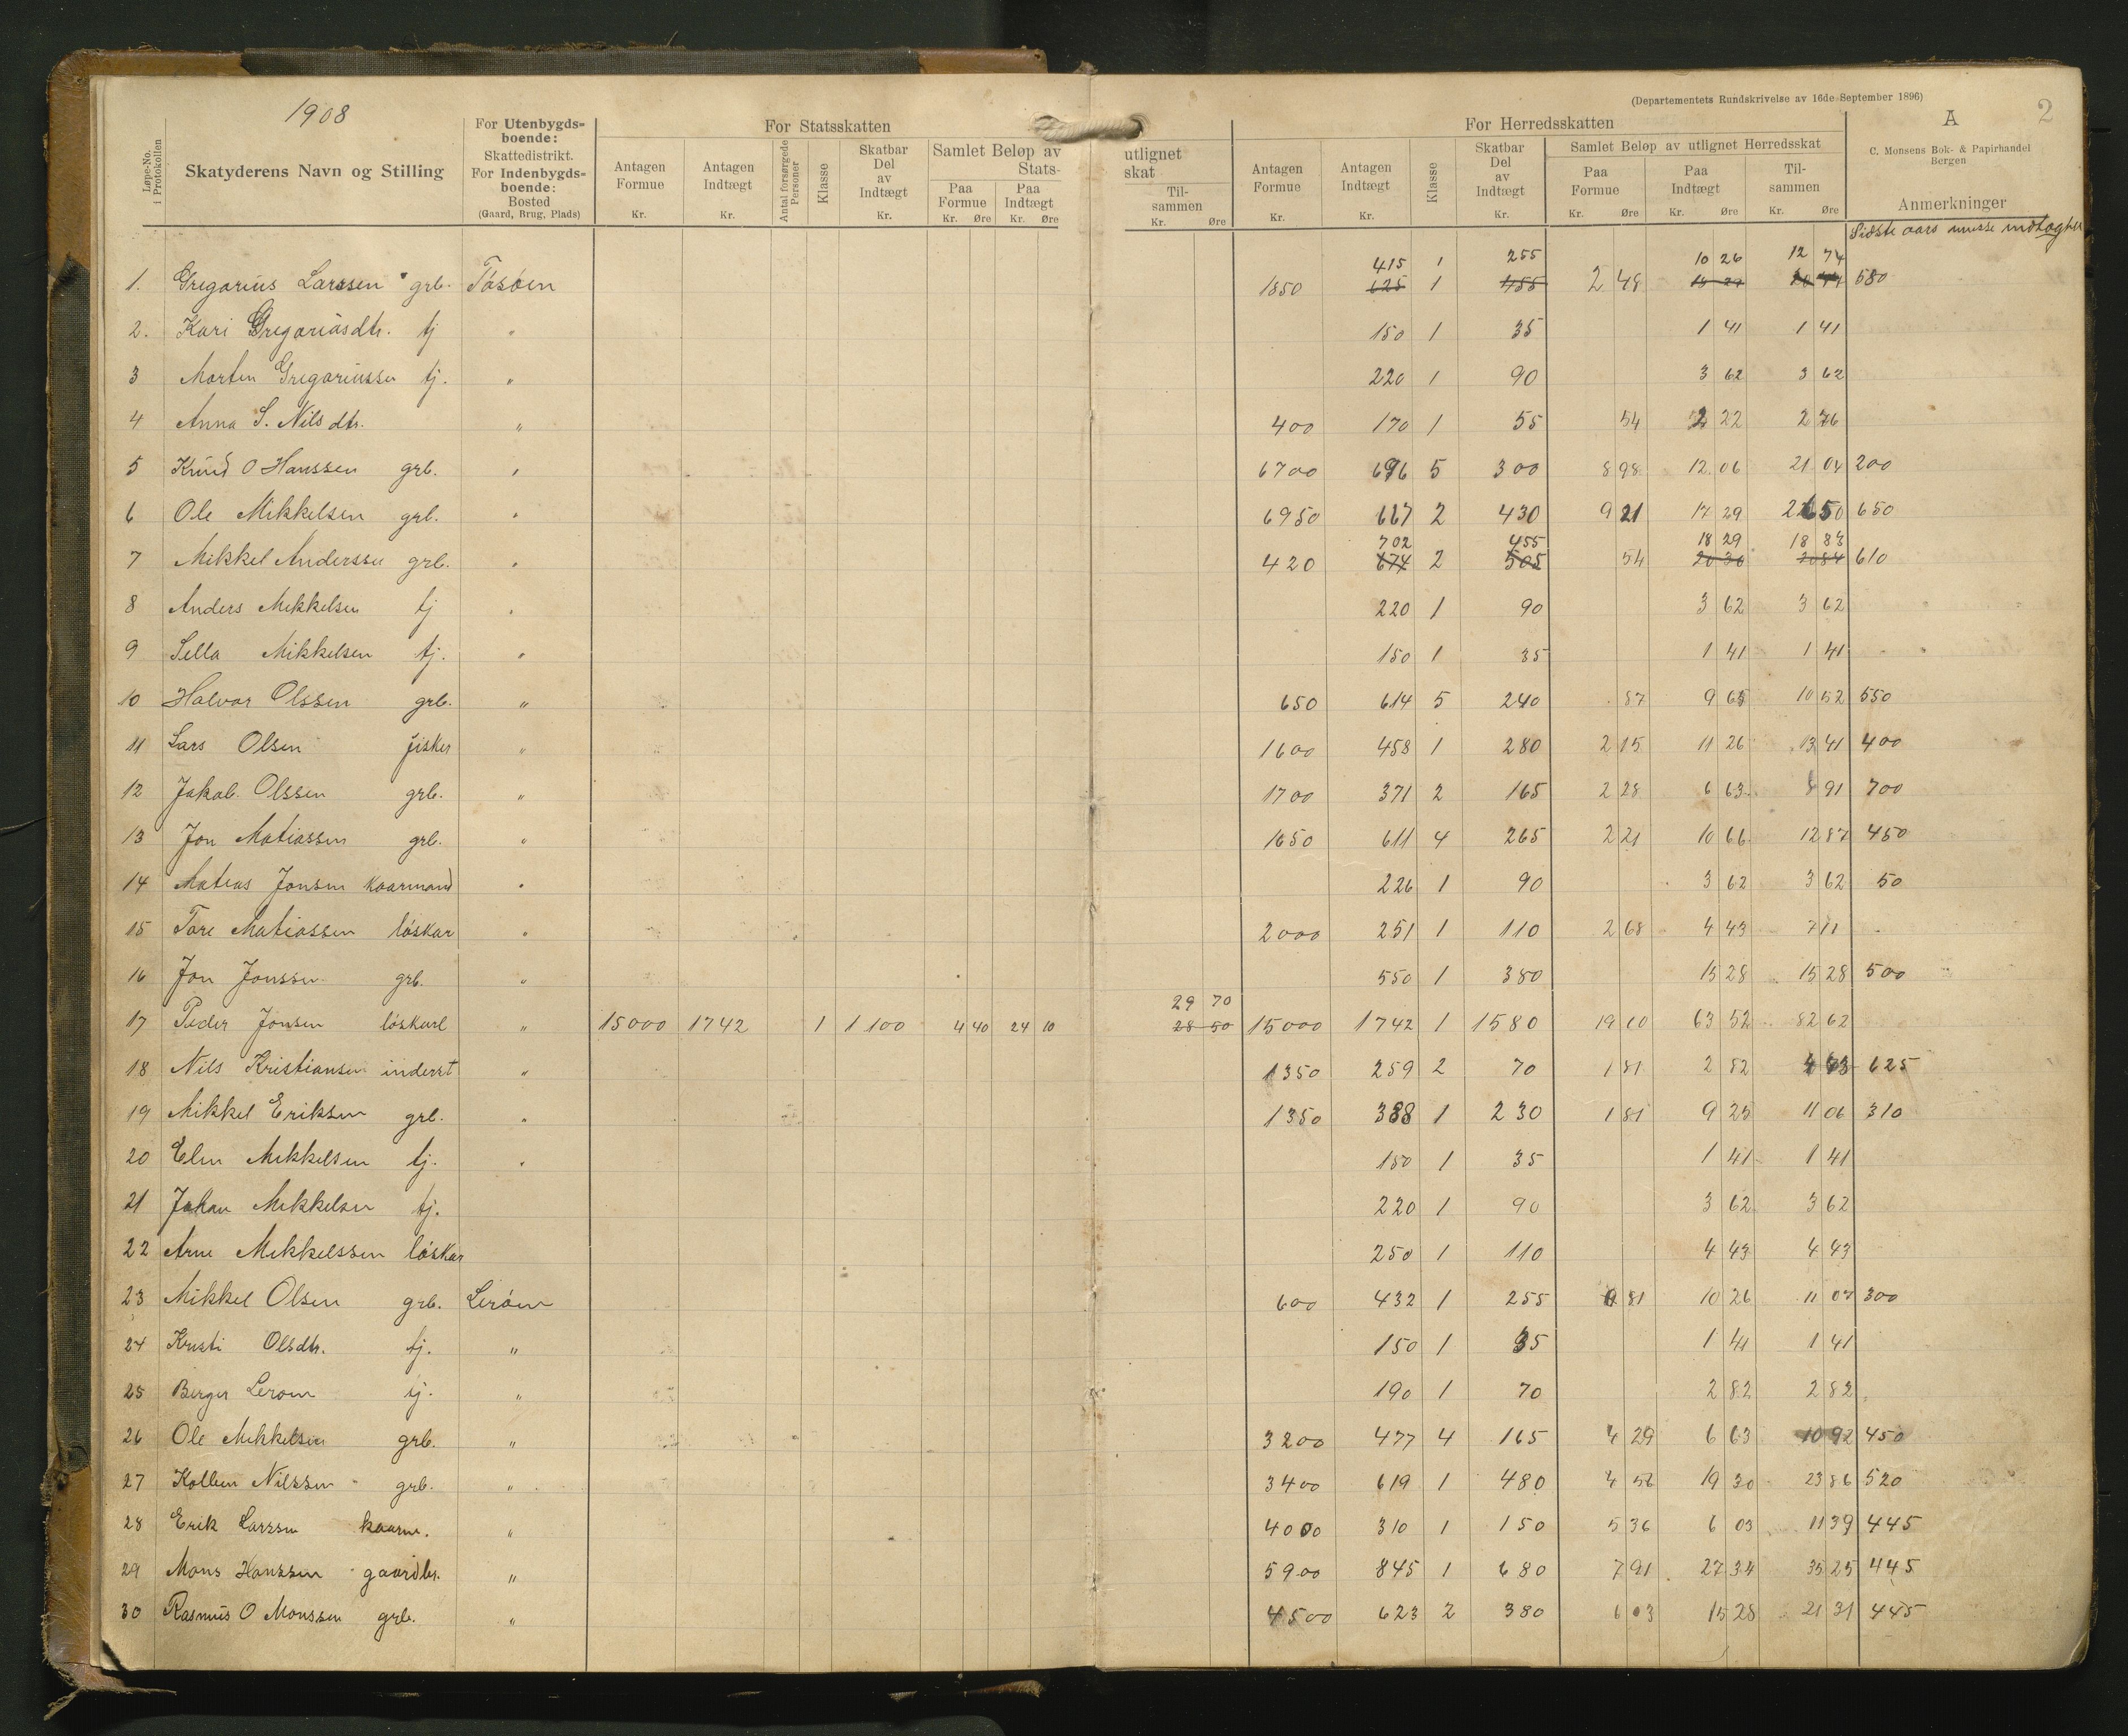 1908
(Departementets Rundskrivelse av 16de September 1896)
A
2
Løpe-No. i Protokollen
Skatyderens Navn og Stilling
For Utenbygds-boende:
Skattedistrikt.
For Indenbygds-boende:
Bosted
(Gaard, Brug, Plads)
For Statsskatten
Antagen Formue Kr.
Antagen Indtægt Kr.
Antal forsørgede Personer
Klasse
Skatbar Del av Indtægt Kr.
Samlet Beløp av Stats-
Paa Formue Kr. Øre
Paa Indtægt Kr. Øre
utlignet skat
Til-sammen Kr. Øre
For Herredsskatten
Antagen Formue Kr.
Antagen Indtægt Kr.
Klasse
Skatbar Del av Indtægt Kr.
Samlet Beløp av utlignet Herredsskat
Paa Formue Kr. Øre
Paa Indtægt Kr. Øre
Til-sammen Kr. Øre
C. Monsens Bok- & Papirhandel
Bergen
Anmerkninger
Sidste aars
415 1 255 10 26 12 74
1. Gregorius Larssen grb. Tösöen 1850 625 1 455 2 48 580
2. Kari Gregoriusdtr. tj " 150 1 35 1 41 1 41
3 Morten Gregoriussen tj. " 220 1 90 3 62 3 62
4 Anna S. Nilsdtr. " 400 170 1 55 54 2 22 2 76
5 Knud O Hanssen grb. " 6700 696 5 300 8 98 12 06 21 04 200
6 Ole Mikkelsen grb. " 6950 667 2 430 9 21 17 29 26 50 650
702 455 18 29 18 83
7 Mikkel Anderssen grb. " 420 674 2 505 54 20 30 20 84 610
8 Anders Mikkelsen tj " 220 1 90 3 62 3 62
9 Sella Mikkelsen tj. " 150 1 35 1 41 1 41
10 Halvor Olssen grb. " 650 614 5 240 87 9 65 10 52 550
11 Lars Olsen fisker " 1600 458 1 280 2 15 11 26 13 41 400
12 Jakob Olssen grb. " 1700 371 2 165 2 28 6 63 8 91 700
13 Jon Matiassen grb. " 1650 611 4 265 2 21 10 66 12 87 450
14 Matias Jonsen Kaarmand " 226 1 90 3 62 3 62 50
15 Tore Matiassen löskar " 2000 251 1 110 2 68 4 43 7 11
16 Jon Jonssen grb. " 550 1 380 15 28 15 28 500
29 70
17 Peder Jonsen löskarl " 15000 1742 1 1100 4 40 24 10 28 50 15000 1742 1 1580 19 10 63 52 82 62
18 Nils Kristiansen inderst " 1350 259 2 70 1 81 2 82 4 63 625
19 Mikkel Eriksen grb. " 1350 388 1 230 1 81 9 25 11 06 310
20 Elen Mikkelsen tj. " 150 1 35 1 41 1 41
21 Johan Mikkelsen tj. 220 1 90 3 62 3 62
22 Arne Mikkelssen löskar 250 1 110 4 43 4 43
23 Mikkel Olsen grb. Leröen 600 432 1 255 81 10 26 11 07 300
24 Kristi Olsdtr. tj. " 150 1 35 1 41 1 41
25 Berger Leroen tj. " 190 1 70 2 82 2 82
26 Ole Mikkelsen grb. " 3200 477 4 165 4 29 6 63 10 92 450
27 Kolben Nilssen grb. " 3400 619 1 480 4 56 19 30 23 86 520
28 Erik Larssen kaarm. " 4000 310 1 150 5 36 6 03 11 39 445
29 Mons Hanssen gaardbr. " 5900 845 1 680 7 91 27 34 35 25 445
30 Rasmus O Monssen grb. " 4500 623 2 380 6 03 15 28 21 31 445